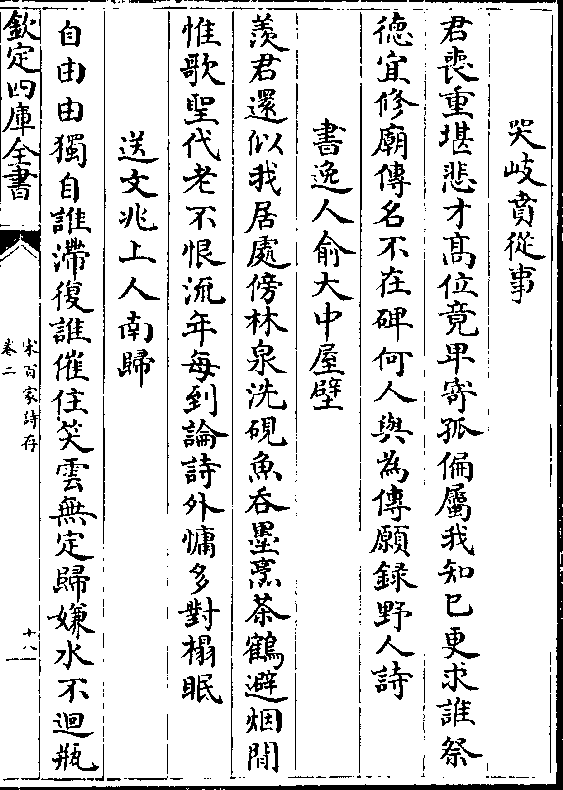 哭岐賁從事
君喪重堪悲才髙位竟卑寄孤偏屬我知已更求誰祭
徳宜修廟傳名不在碑何人與為傳願録野人詩
書逸人俞大中屋壁
羡君還似我居處傍林泉洗硯魚吞墨烹茶鶴避烟閒
惟歌聖代老不恨流年每到論詩外慵多對榻眠
送文兆上人南歸
自由由獨自誰滯復誰催住笑雲無定歸嫌水不迴瓶
欽定四庫全書
宋百家詩存
卷二
十八